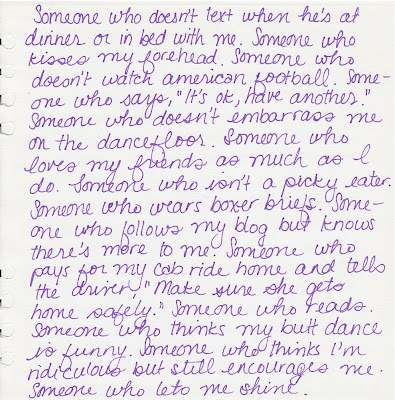 Someone who doesn't text when he's at
dinner or in bed with me. Someone who
kisses my forehead. Someone who
doesn't watch american football. Some-
one who says, "It's ok, have another."
Someone who doesn't embarrass me
on the dancefloor. Someone who
loves my friends as much as I
do. Someone who isn't a picky eater.
Someone who wears boxer briefs. Some-
one who follows my blog but knows
there's more to me. Someone who
pays for my cab ride home and tells
the driver, "Make sure she gets
home safely." Someone who reads.
Someone who thinks my butt dance
is funny. Someone who thinks I'm
ridiculous but still encourages me.
Someone who lets me shine.